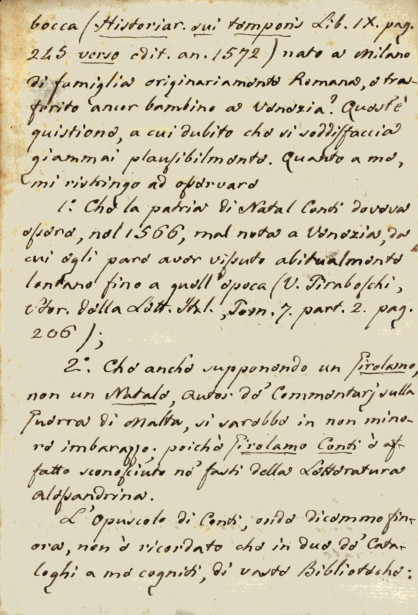 bocca (Historiar. sui temporis Lib. IX. pag.
245 verso edit. an. 1572) nato a Milano
di famiglia originariamente Romana, e tras-
ferito ancor bambino a Venezia? Quest'è
quistione, a cui dubito che si soddisfaccia
giammai plausibilmente. Quanto a me,
mi ristringo ad osservare
1.° Che la patria di Natal Conti doveva
essere, nel 1566, mal nota a Venezia, da
cui egli pare aver vissuto abitualmente
lontano fino a quell'epoca (V. Tiraboschi,
Stor. della Lett. Ital., Tom. 7. part. 2. pag.
206);
2.° Che anche supponendo un Girolamo,
non un Natale, Autor de' Commentarj sulla
Guerra di Malta, si sarebbe in non mino-
re imbarazzo; poichè Girolamo Conti è af-
fatto sconosciuto ne' fasti della Letteratura
Alessandrina.
L'Opuscolo di Conti, onde dicemmo fin-
ora, non è ricordato che in due de' Cata-
loghi a me cogniti, di vaste Biblioteche: